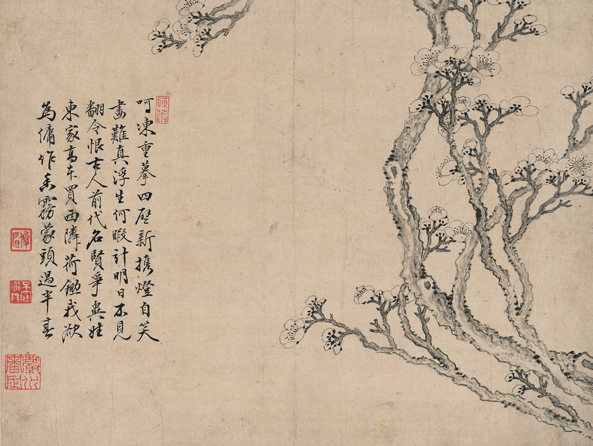 呵凍重摹四壁新攜燈自笑
畫難真浮生何暇計明日不見
翻令恨古人前代名賢爭與姓
東家高本買西隣荷鋤我欲
為傭作香霧蒙頭過半春